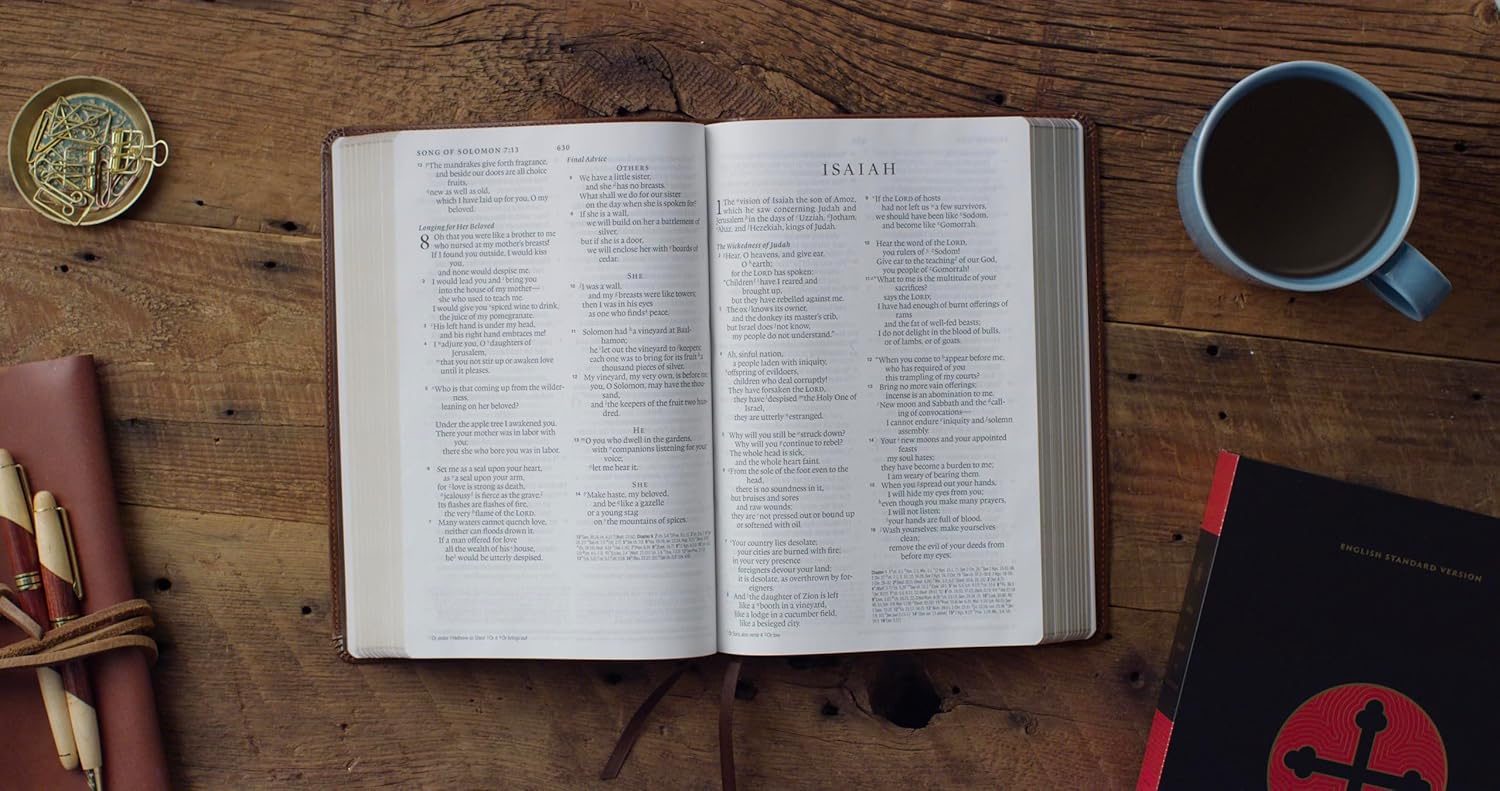 SONG OF SOLOMON 7:13
630
13 The mandrakes give forth fragrance,
and beside our doors are all choice
fruits,
new as well as old,
which I have laid up for you, O my
beloved.
Longing for Her Beloved
8 Oh that you were like a brother to me
who nursed at my mother's breasts!
If I found you outside, I would kiss
you,
and none would despise me.
2 I would lead you and bring you
into the house of my mother—
she who used to teach me.
I would give you spiced wine to drink,
the juice of my pomegranate.
3 His left hand is under my head,
and his right hand embraces me!
4 I adjure you, O daughters of
Jerusalem,
that you not stir up or awaken love
until it pleases.
5 Who is that coming up from the wilder-
ness,
leaning on her beloved?
Under the apple tree I awakened you.
There your mother was in labor with
you;
there she who bore you was in labor.
6 Set me as a seal upon your heart,
as a seal upon your arm,
for love is strong as death,
jealousy is fierce as the grave.
Its flashes are flashes of fire,
the very flame of the LORD.
7 Many waters cannot quench love,
neither can floods drown it.
If a man offered for love
all the wealth of his house,
he would be utterly despised.
Final Advice
OTHERS
8 We have a little sister,
and she has no breasts.
What shall we do for our sister
on the day when she is spoken for?
9 If she is a wall,
we will build on her a battlement of
silver,
but if she is a door,
we will enclose her with boards of
cedar.
SHE
10 I was a wall,
and my breasts were like towers;
then I was in his eyes
as one who finds peace.
11 Solomon had a vineyard at Baal-
hamon;
he let out the vineyard to keepers;
each one was to bring for its fruit a
thousand pieces of silver.
12 My vineyard, my very own, is before me;
you, O Solomon, may have the thou-
sand,
and the keepers of the fruit two hun-
dred.
HE
13 O you who dwell in the gardens,
with companions listening for your
voice;
let me hear it.
SHE
14 Make haste, my beloved,
and be like a gazelle
or a young stag
on the mountains of spices.
ISAIAH
1 The vision of Isaiah the son of Amoz,
which he saw concerning Judah and
Jerusalem in the days of Uzziah, Jotham,
Ahaz, and Hezekiah, kings of Judah.
The Wickedness of Judah
2 Hear, O heavens, and give ear,
O earth;
for the LORD has spoken:
"Children have I reared and
brought up,
but they have rebelled against me.
3 The ox knows its owner,
and the donkey its master's crib,
but Israel does not know,
my people do not understand."
4 Ah, sinful nation,
a people laden with iniquity,
offspring of evildoers,
children who deal corruptly!
They have forsaken the LORD,
they have despised the Holy One of
Israel,
they are utterly estranged.
5 Why will you still be struck down?
Why will you continue to rebel?
The whole head is sick,
and the whole heart faint.
6 From the sole of the foot even to the
head,
there is no soundness in it,
but bruises and sores
and raw wounds;
they are not pressed out or bound up
or softened with oil.
7 Your country lies desolate;
your cities are burned with fire;
in your very presence
foreigners devour your land;
it is desolate, as overthrown by for-
eigners.
8 And the daughter of Zion is left
like a booth in a vineyard,
like a lodge in a cucumber field,
like a besieged city.
9 If the LORD of hosts
had not left us a few survivors,
we should have been like Sodom,
and become like Gomorrah.
10 Hear the word of the LORD,
you rulers of Sodom!
Give ear to the teaching of our God,
you people of Gomorrah!
11 "What to me is the multitude of your
sacrifices?
says the LORD;
I have had enough of burnt offerings of
rams
and the fat of well-fed beasts;
I do not delight in the blood of bulls,
or of lambs, or of goats.
12 "When you come to appear before me,
who has required of you
this trampling of my courts?
13 Bring no more vain offerings;
incense is an abomination to me.
New moon and Sabbath and the call-
ing of convocations—
I cannot endure iniquity and solemn
assembly.
14 Your new moons and your appointed
feasts
my soul hates;
they have become a burden to me;
I am weary of bearing them.
15 When you spread out your hands,
I will hide my eyes from you;
even though you make many prayers,
I will not listen;
your hands are full of blood.
16 Wash yourselves; make yourselves
clean;
remove the evil of your deeds from
before my eyes;
ENGLISH STANDARD VERSION